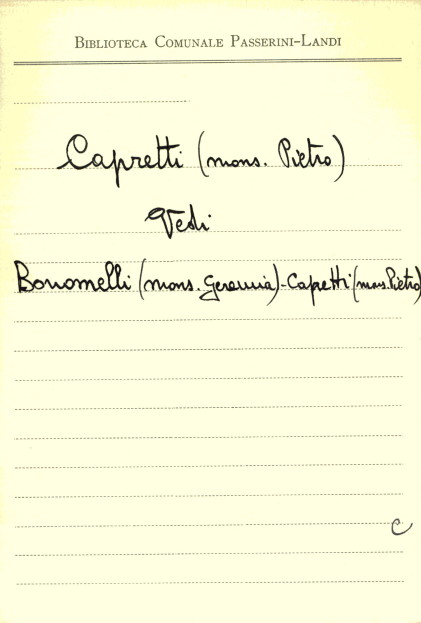 Biblioteca Comunale Passerini-Landi
Capretti (mons. Pietro)
Vedi
Bonomelli (mons. Geremia)-Capretti (mons. Pietro)
C